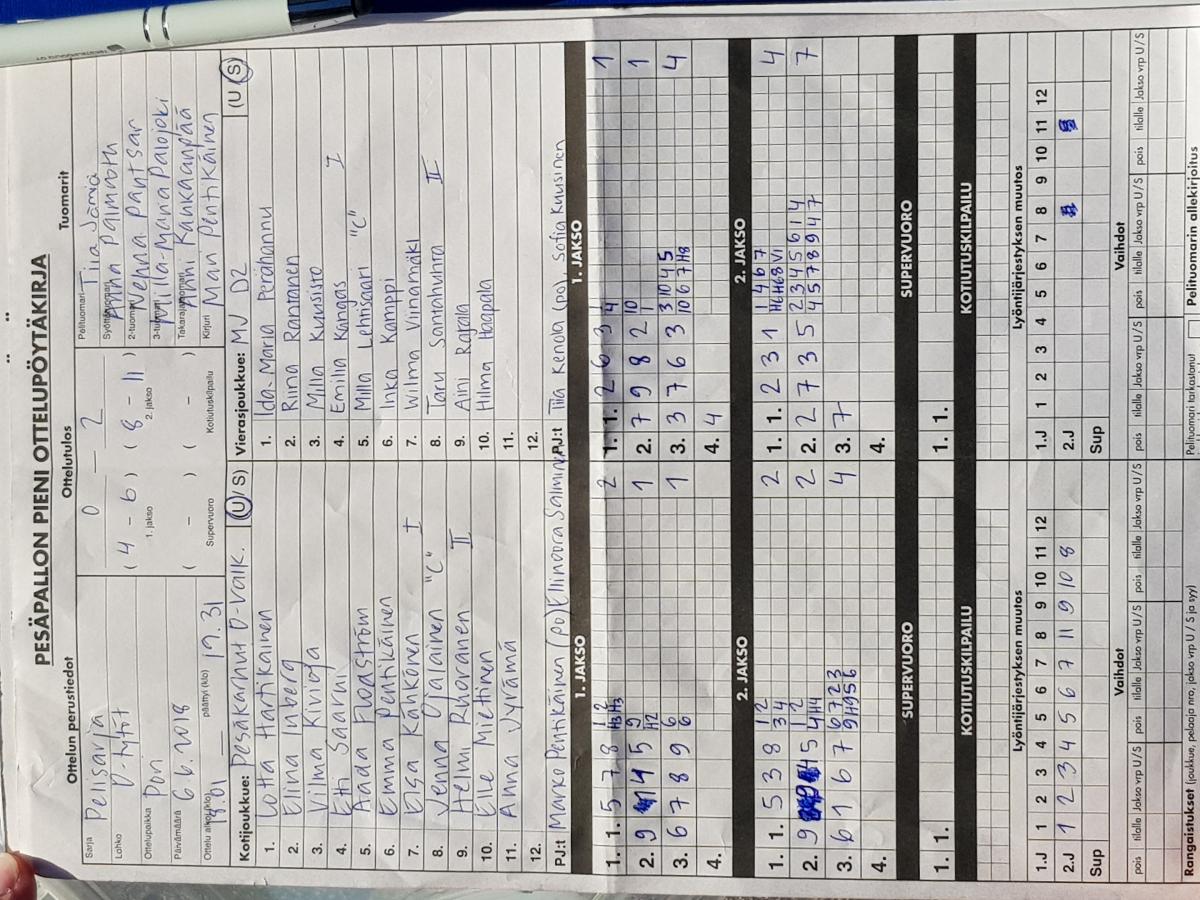 PESÄPALLON PIENI OTTELUPÖYTÄKIRJA
Ottelun perustiedot
Sarja Pelisarja
Lohko D-tytöt
Ottelupaikka Pori
Päivämäärä 6.6.2018
Ottelu alkoi (klo) 18.01 — päättyi (klo) 19.31
Ottelutulos
0 — 2
( 4 - 6 ) ( 8 - 11 )
1. jakso 2. jakso
( - ) ( - )
Supervuoro Kotiutuskilpailu
Tuomarit
Pelituomari Tiia Jämiä
Syöttötuomari Anna Palmroth
2-tuomari Nelma Pantsar
3-tuomari Milla-Maria Palojoki
Takarajatuomari Anni Kankaanpää
Kirjuri Mari Pentikäinen
Kotijoukkue: Pesäkarhut D-valk. (U / S)
1. Lotta Hartikainen
2. Elina Inberg
3. Vilma Kivioja
4. Etti Saarni
5. Aada Floaström
6. Emma Pentikäinen
7. Elsa Kähkönen I
8. Venna Ojalainen "C"
9. Helmi Rihoranen II
10. Elle Metinen
11. Anna Vyrämä
12.
PJ:t Marko Pentikäinen (po) Ellinoora Salminen
Vierasjoukkue: MJ D2 (U / S)
1. Ida-Maria Perähannu
2. Riina Rantanen
3. Milla Kuusisto
4. Emilia Kangas I
5. Milla Lehtisaari "C"
6. Inka Kamppi
7. Wilma Viinamäki
8. Taru Santahuhta II
9. Aini Rajala
10. Hilma Haapala
11.
12.
PJ:t Tiia Kenola (po) Sofia Kuusinen
1. JAKSO
1. 1. 5 7 8 1 2 2
H3 H3
2. 9 4 5 9 1
H2
3. 6 7 8 9 6 1
6
4.
2. JAKSO
1. 1. 5 3 8 1 2 2
3 4
2. 9 5 1 2 2
4 H4
3. 6 1 6 7 6 7 2 3 4
9 H9 5 6
4.
SUPERVUORO
1. 1.
KOTIUTUSKILPAILU
1. JAKSO
1. 1. 2 6 3 1 1
4
2. 7 9 8 2 10 1
1
3. 3 7 6 3 3 10 4 5 4
10 6 7 H8
4. 4
2. JAKSO
1. 1. 2 3 1 1 4 6 7 4
H6 H6 8 V1
2. 2 7 3 5 2 3 4 5 6 1 4 7
4 5 7 8 9 4 7
3. 7
4.
SUPERVUORO
1. 1.
KOTIUTUSKILPAILU
Lyöntijärjestyksen muutos
1.J 1 2 3 4 5 6 7 8 9 10 11 12
2.J 1 2 3 4 5 6 7 11 9 10 8
Sup
Vaihdot
pois tilalle Jakso vrp U / S pois tilalle Jakso vrp U / S pois tilalle Jakso vrp U / S
Lyöntijärjestyksen muutos
1.J 1 2 3 4 5 6 7 8 9 10 11 12
2.J
Sup
Vaihdot
pois tilalle Jakso vrp U / S pois tilalle Jakso vrp U / S pois tilalle Jakso vrp U / S
Rangaistukset (joukkue, pelaaja nro, jakso vrp U / S ja syy)
Pelituomari tarkastanut
Pelituomarin allekirjoitus